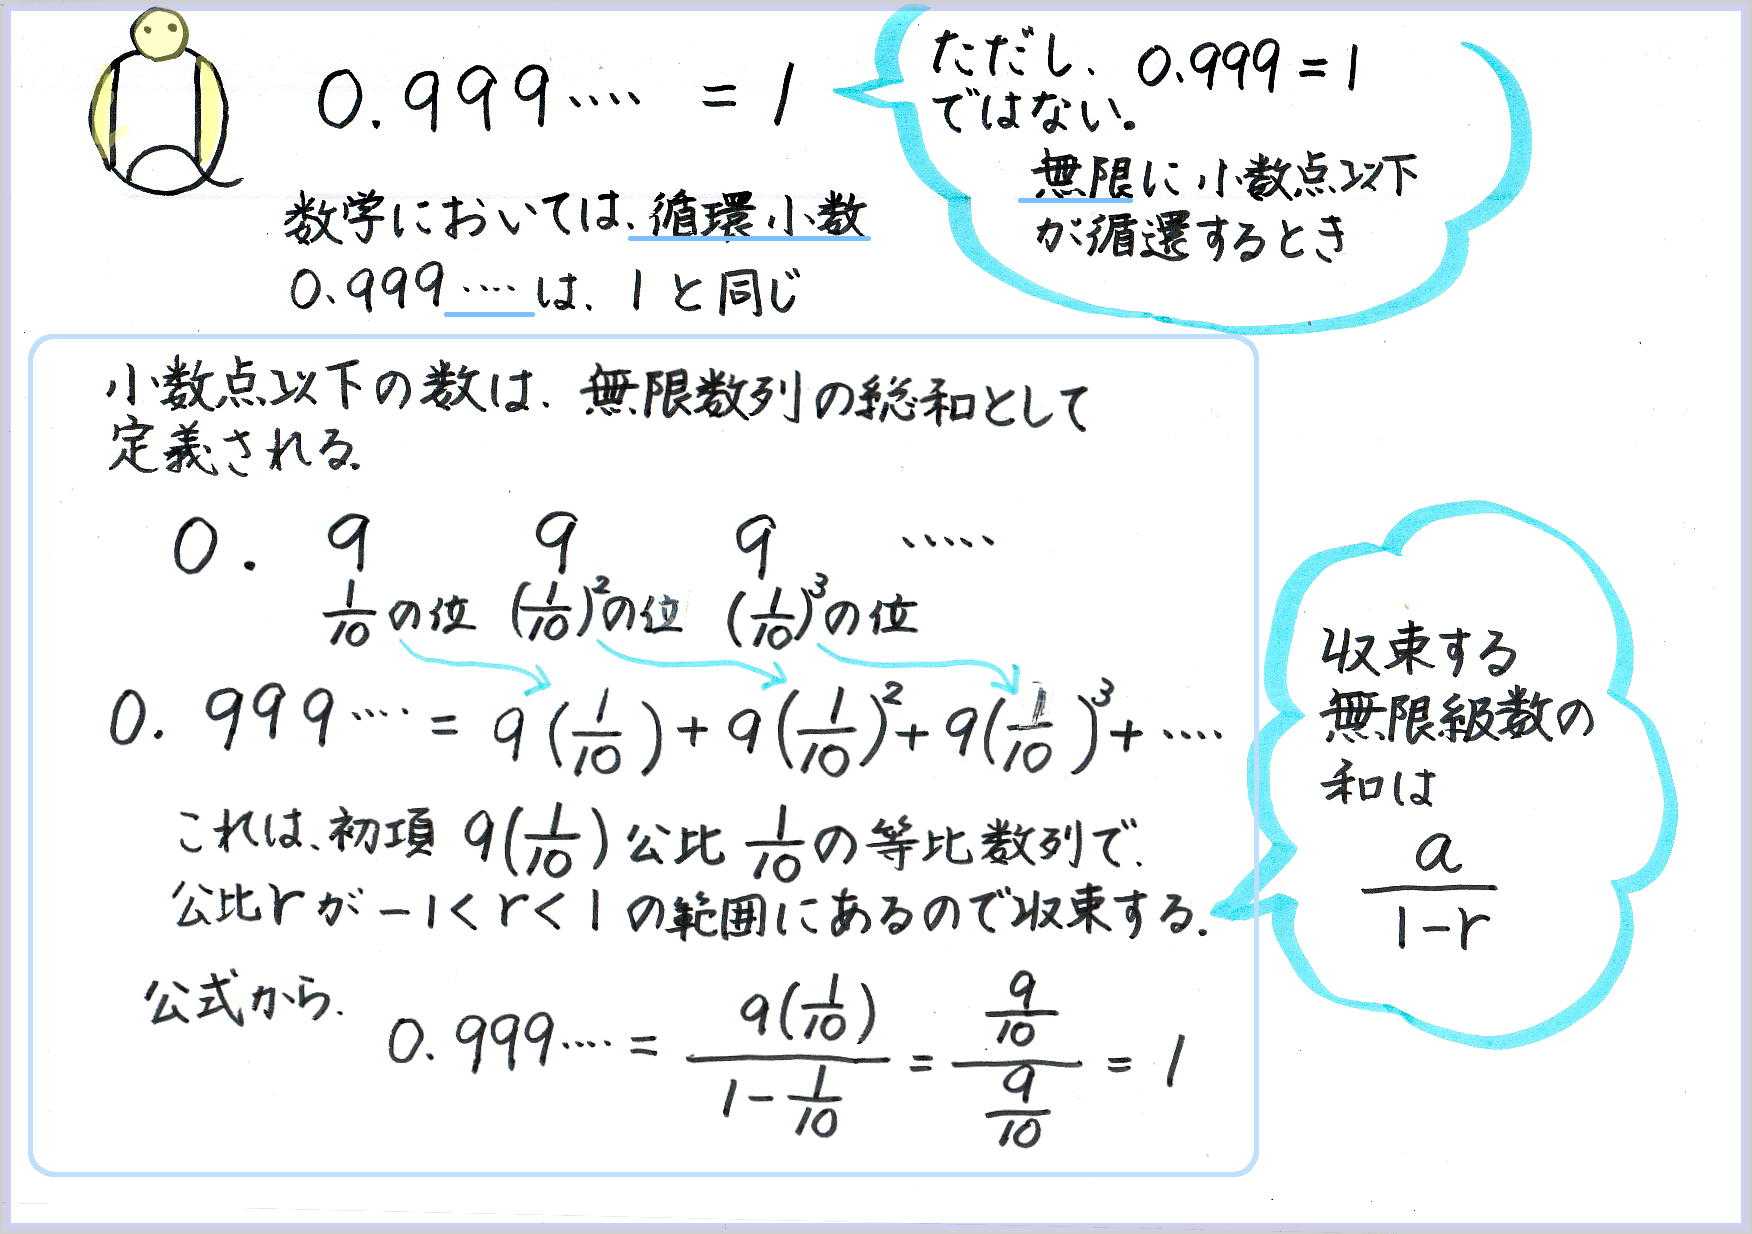 0.999‥‥ = 1
数学においては、循環小数
0.999‥‥は、1と同じ
ただし、0.999=1
ではない。
無限に小数点以下
が循還するとき
小数点以下の数は、無限数列の総和として
定義される。
0. 9 9 9 ‥‥‥
1/10の位 (1/10)²の位 (1/10)³の位
0.999‥‥ = 9(1/10)+9(1/10)²+9(1/10)³+‥‥
これは、初項 9(1/10) 公比 1/10の等比数列で、
公比rが -1<r<1 の範囲にあるので収束する。
収束する
無限級数の
和は
a/(1-r)
公式から、
0.999‥‥ = 9(1/10)/(1-1/10) = (9/10)/(9/10) = 1